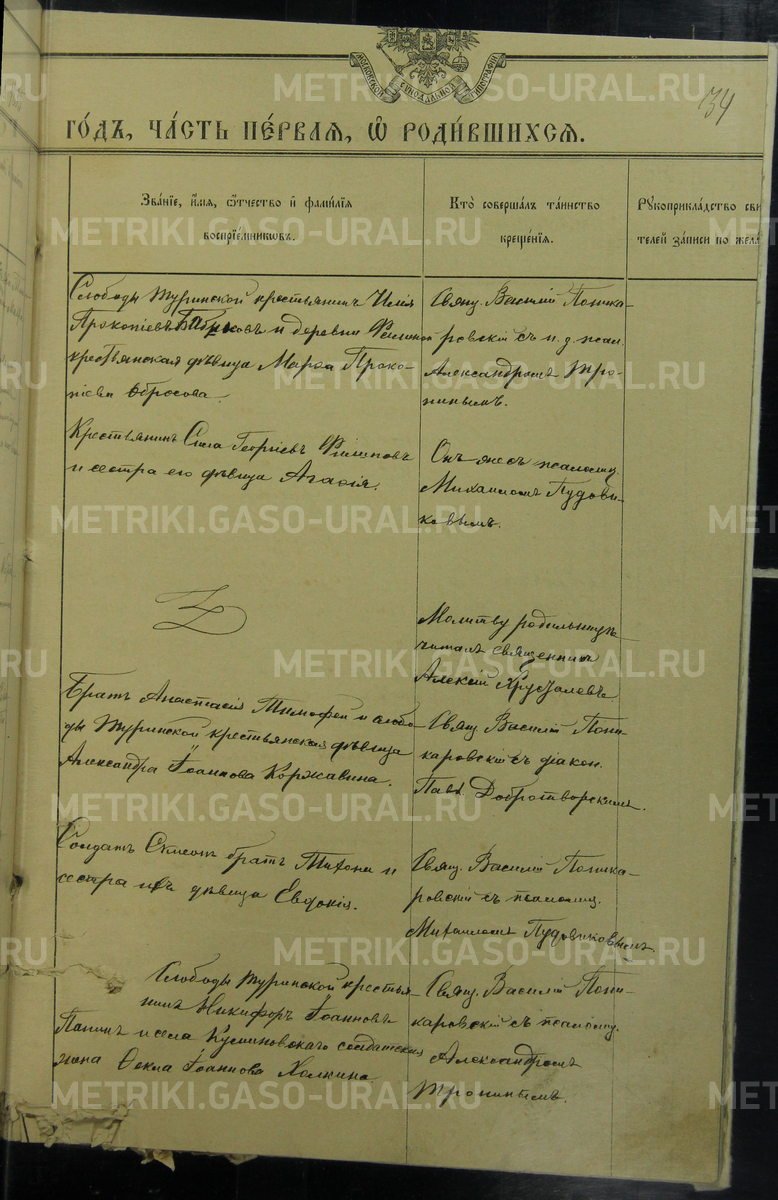 34
МОСКОВСКОЙ СѴНОДАЛЬНОЙ ТИПОГРАФІИ
ГО́ДЪ, ЧА́СТЬ ПЕ́РВАЯ, Ѡ҆ РОДИ́ВШИХСЯ.
Зва́нїе, и҆́мя, ѻ҆́тчество и҆ фами́лїя
воспрїе́мниковъ.
Кто̀ соверша́лъ та́инство
креще́нїя.
Рꙋкоприкла́дство сви
телей за́писи по жела́
Слободы Туринской крестьянинъ Илія
Прокопіевъ и деревни
крестьянская дѣвица Марѳа Проко-
піева Обросова.
Свящ. Василій Поника-
ровскій съ и. д. псал.
Александромъ Тро-
нинымъ.
Крестьянинъ Сила Георгіевъ Филиповъ
и сестра его дѣвица Агаѳія.
Онъ же съ псаломщ.
Михаиломъ Пудови-
ковымъ.
Молитву родильницѣ
читалъ священникъ
Алексій Хрусталевъ
Братъ Анастасіи Тимофей и слобо-
ды Туринской крестьянская дѣвица
Александра Іоаннова Коржавина.
Свящ. Василій Пони-
каровскій съ діакон.
Павл. Добротворскимъ.
Солдатъ братъ Тихона и
сестра ихъ дѣвица Евдокія.
Свящ. Василій Поника-
ровскій съ псаломщ.
Михаиломъ Пудовиковымъ.
Слободы Туринской крестья-
нинъ Никифоръ Іоанновъ
Панинъ и села Куминовскаго солдатская
жена Ѳекла Іоаннова Холкина
Свящ. Василій Пони-
каровскій съ псаломщ.
Александромъ
Тронинымъ.
METRIKI.GASO-URAL.RU